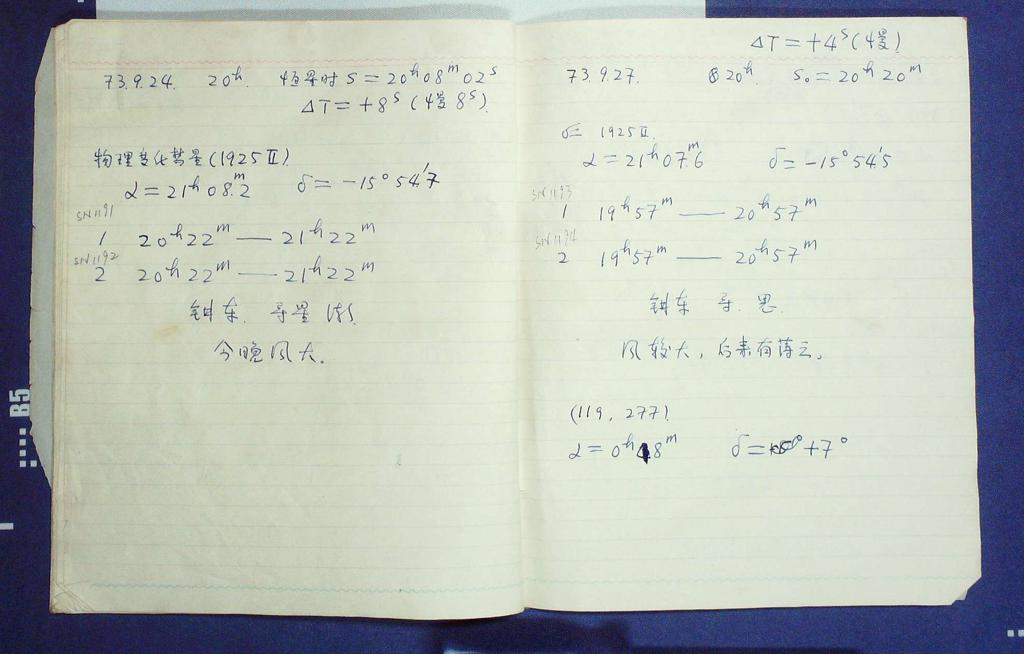 73.9.24. 20ʰ 恒星时 S = 20ʰ 08ᵐ 02ˢ
ΔT = +8ˢ (慢 8ˢ).
物理变化彗星 (1925 II).
α = 21ʰ 08ᵐ.2 δ = -15° 54'.7
SN1191
1 20ʰ 22ᵐ — 21ʰ 22ᵐ
SN1192
2 20ʰ 22ᵐ — 21ʰ 22ᵐ
导星
今晚风大.
ΔT = +4ˢ (慢)
73.9.27. 20ʰ. S₀ = 20ʰ 20ᵐ
1925 II.
α = 21ʰ 07ᵐ.6 δ = -15° 54'.5
SN1193
1 19ʰ 57ᵐ — 20ʰ 57ᵐ
SN1194
2 19ʰ 57ᵐ — 20ʰ 57ᵐ
导. 思.
风较大, 后来有薄云.
(119, 277).
α = 0ʰ 48ᵐ δ = +7°
B5